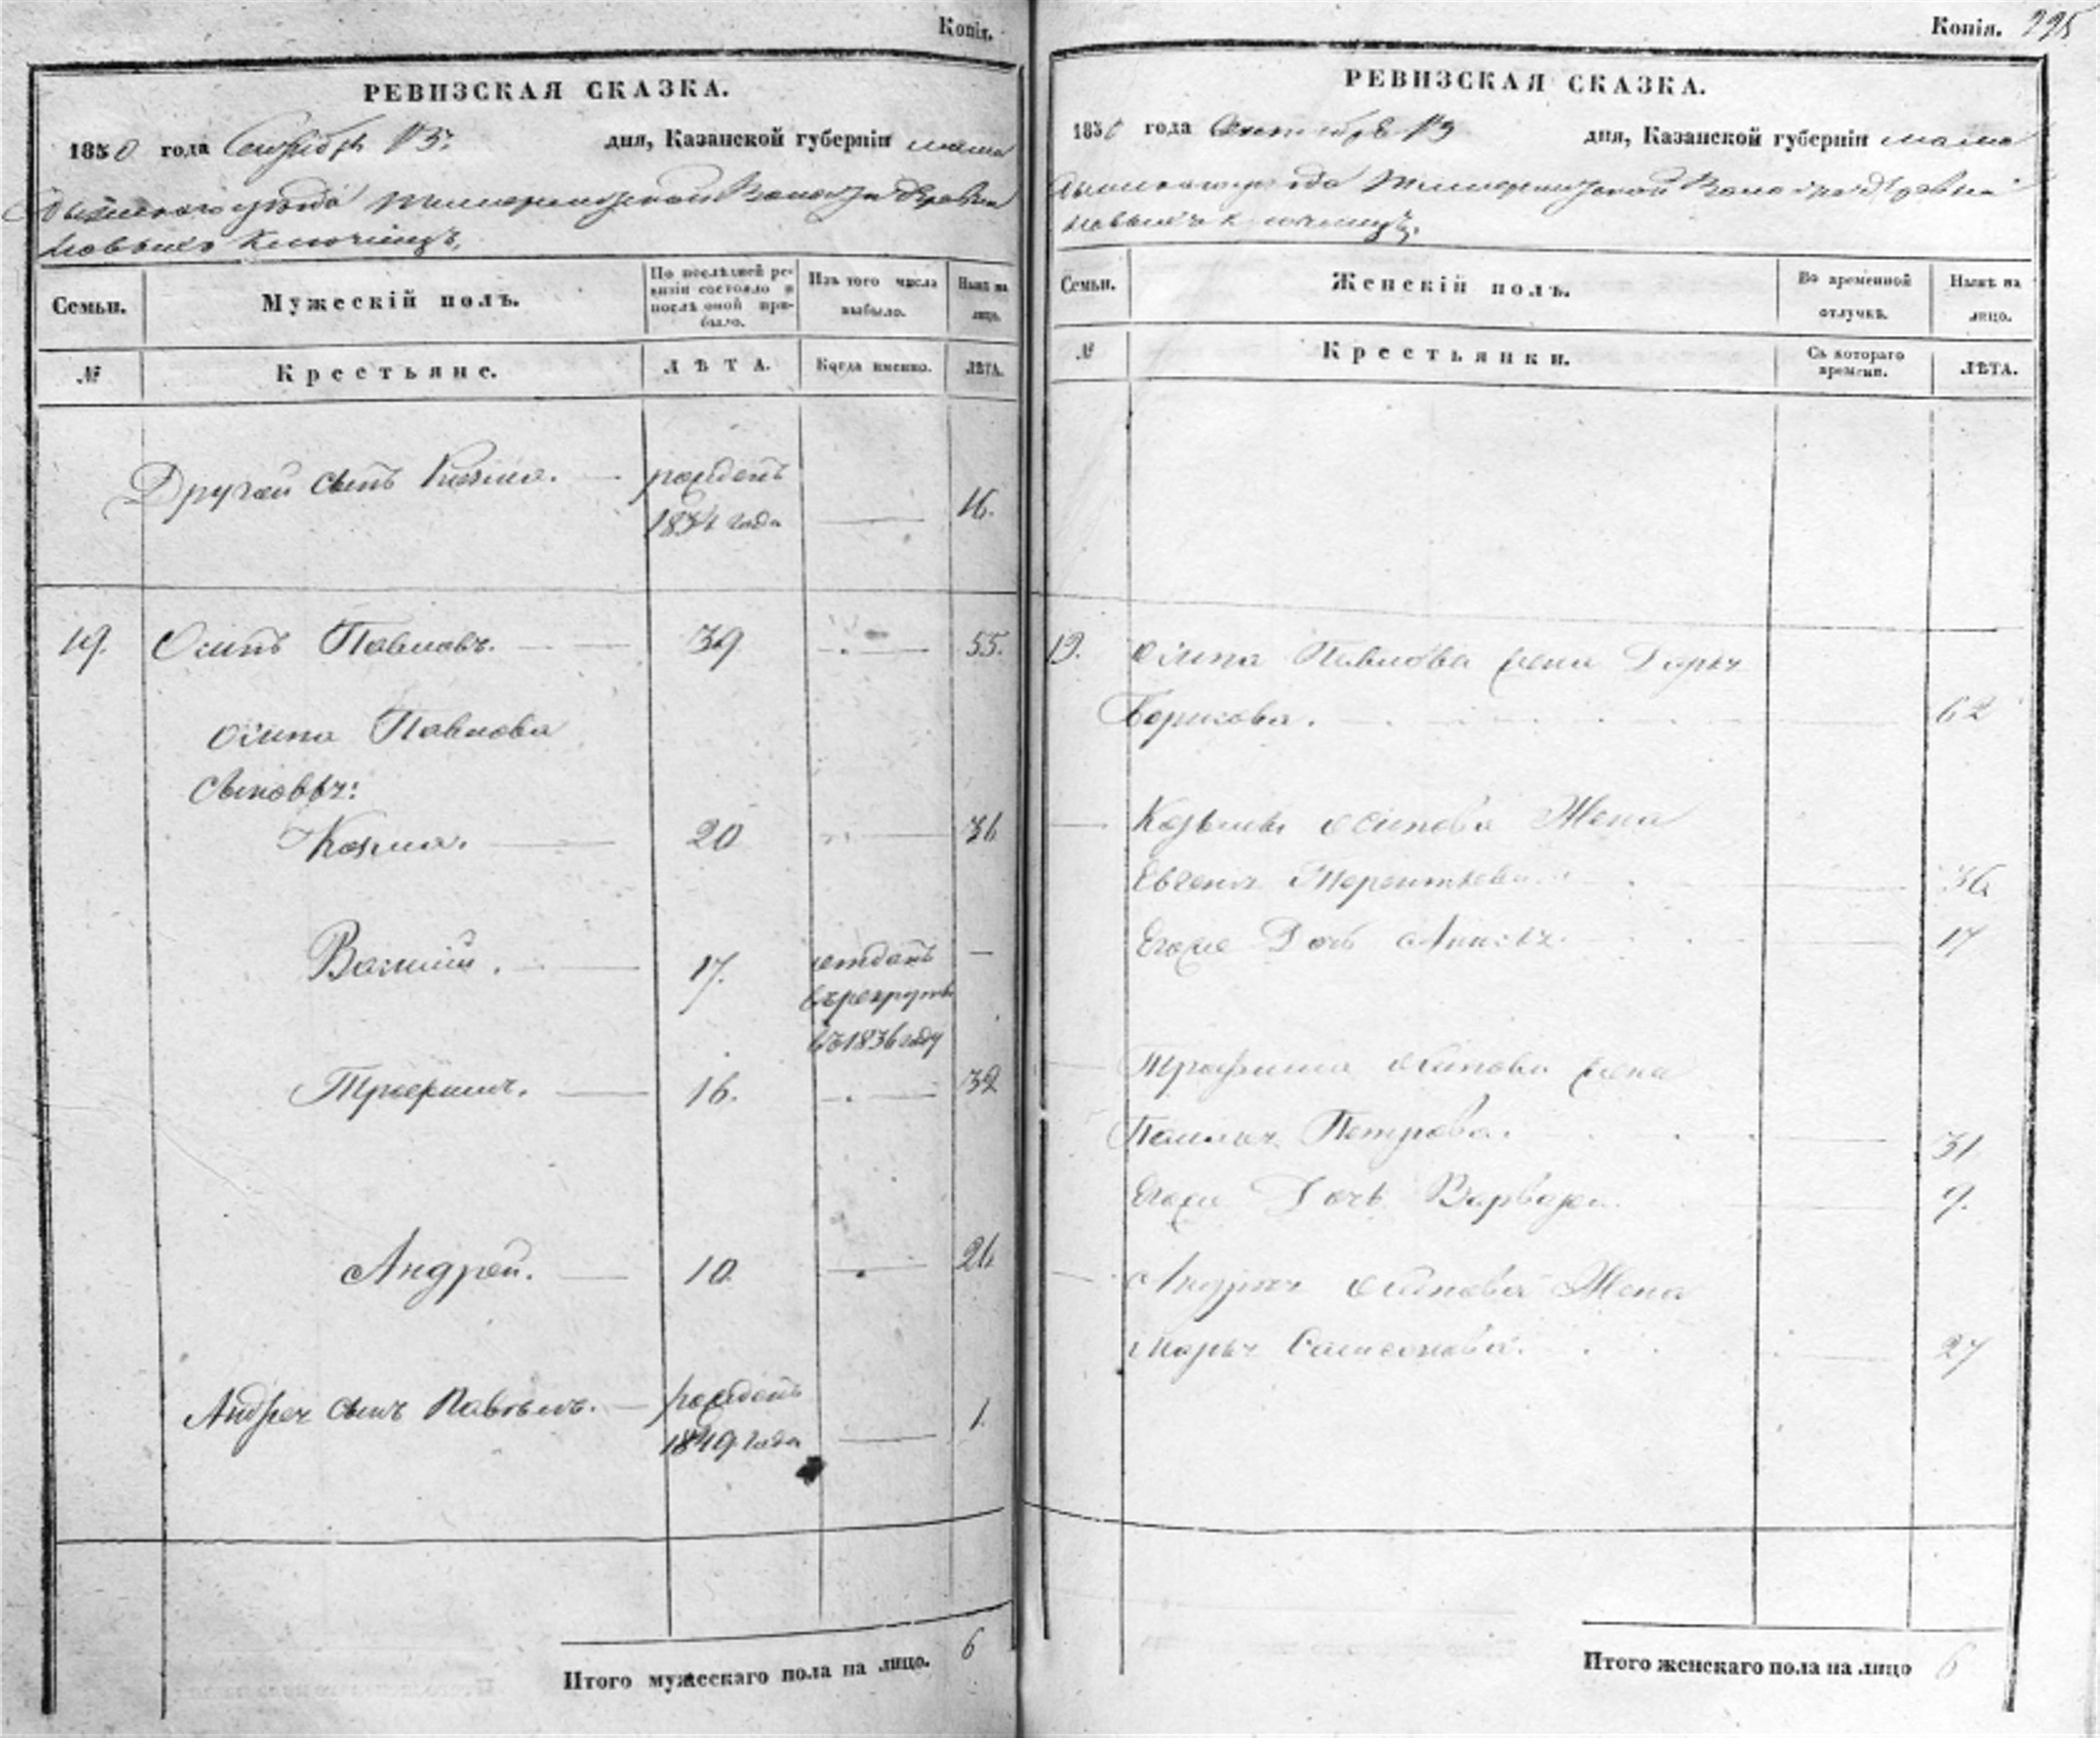 Копія.
РЕВИЗСКАЯ СКАЗКА.
1850 года Сентября 13. дня, Казанской губерніи мама
дышскаго уѣзда волости деревни
Новыхъ Ключищъ,
Семьи.
Мужескій полъ.
По послѣдней ре-
визіи состояло и
послѣ оной при-
было.
Изъ того числа
выбыло.
Нынѣ на
лицо.
№
Крестьяне.
ЛѢТА.
Когда именно.
ЛѢТА.
Другой сынъ рожденъ
1834 года 16.
19. Осипъ Павловъ. 39 55.
Осипа Павлова
сыновья:
Козма. 20 36
Василій. 17. отданъ
въ рекруты
въ 1836 году
Трофимъ. 16. 32
Андрей. 10. 26
Андрея сынъ Павелъ. рожденъ
1849 года 1.
Итого мужескаго пола на лицо. 6
Копія. 225
РЕВИЗСКАЯ СКАЗКА.
1850 года 13 дня, Казанской губерніи мама
дышскаго уѣзда волости деревни
Новыхъ Ключищъ.
Семьи.
Женскій полъ.
Во временной
отлучкѣ.
Нынѣ на
лицо.
№
Крестьянки.
Съ котораго
времени.
ЛѢТА.
19. Осипа Павлова жена Дарья
Борисова. 62
Козьмы Осипова Жена
Евгенія Терентьева 36
Его же Дочь 17
Трофима Осипова жена
Петрова. 31
Его же Дочь Варвара 9.
Андрея Осипова Жена
Марья Самсонова. 27
Итого женскаго пола на лицо 6